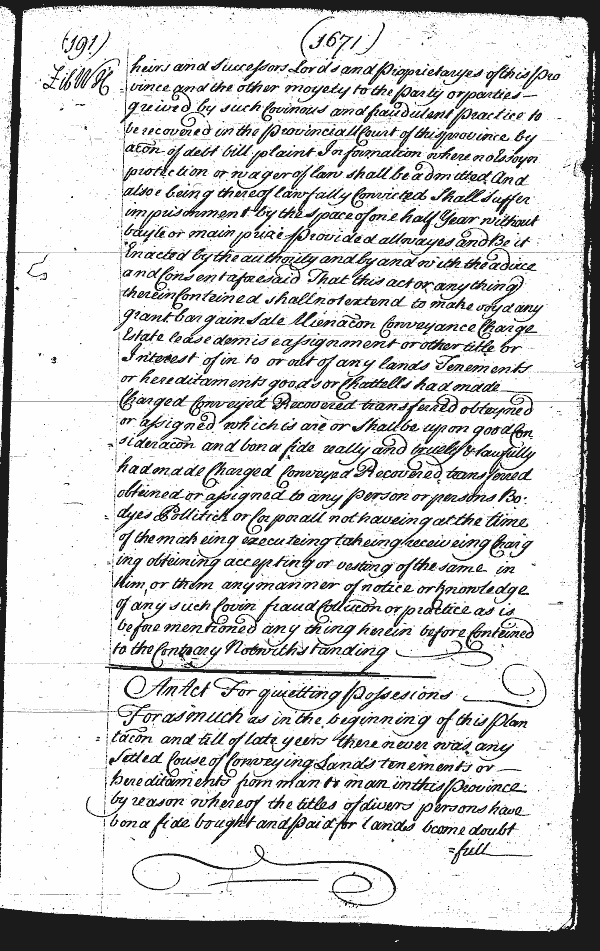 (191)
(1671)
Lib W H
heirs and Successors Lords and Proprietaryes of this Pro
vince and the other moyety to the Party or parties
greived by such Covinous and fraudulent Practice to
be recovered in the Provinciall Court of this province by
acon of debt bill plaint Information where no Essoyn
protection or wager of law shall be admitted And
alsoe being thereof lawfully Convicted Shall suffer
imprisonment by the space of one half Year without
bayle or main prize Provided allwayes and Be it
Enacted by the authority and by and with the advice
and Consent aforesaid That this act or any thing
therein Conteined shall not extend to make voyd any
grant bargain Sale Alienacon Conveyance Charge
Estate lease demise assignment or other title or
Interest of in to or out of any lands Tenements
or hereditaments goods or Chattells had made
Charged Conveyed Recovered transferred obteyned
or assigned which is are or shall be upon good Con
sideracon and bona fide really and truely & lawfully
had made Charged Conveyed Recovered transferred
obteined or assigned to any Person or persons Bo
dyes Pollitick or Corporall not haveing at the time
of the makeing executeing takeing receiveing Charg
ing obteining accepting or vesting of the same in
him or them any manner of notice or knowledge
of any such Covin fraud Collucon or practice as is
before mentioned any thing herein before Conteined
to the Contrary Notwithstanding
An Act For quietting Possesions
Forasmuch as in the beginning of this Plan
tacon and till of late yeers there never was any
Setled Couse of Conveying Lands tenements or
hereditaments from man to man in this Province
by reason whereof the titles of divers persons have
bona fide bought and Paid for lands become doubt
=full